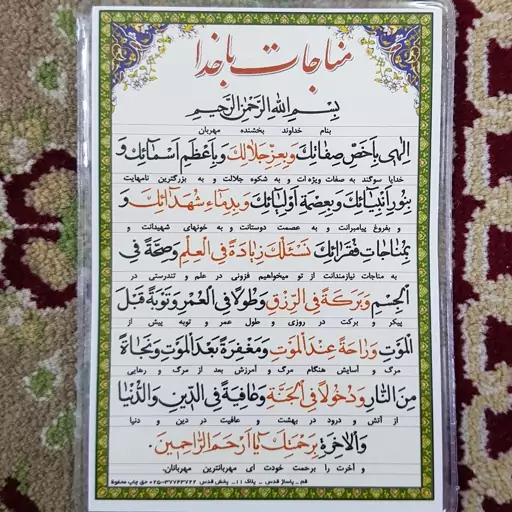 مناجات با خدا
بِسْمِ اللهِ الرَّحْمٰنِ الرَّحیمِ
بنام خداوند بخشنده مهربان
اِلٰهی بِاَخَصِّ صِفاتِكَ وَ بِعِزِّ جَلالِكَ وَ بِاَعْظَمِ اَسْمائِكَ وَ
خدایا سوگند به صفات ویژه ات و به شکوه جلالت و به بزرگترین نامهایت
بِنُورِ اَنْبِیائِكَ وَ بِعِصْمَةِ اَوْلِیائِكَ وَ بِدِماءِ شُهَدائِكَ وَ
و بفروغ پیامبرانت و به عصمت دوستانت و به خونهای شهیدانت و
بِمُناجاتِ فُقَرائِكَ نَسْئَلُكَ زِیادَةً فِی الْعِلْمِ وَ صِحَّةً فِی
به مناجات نیازمندانت از تو میخواهیم فزونی در علم و تندرستی در
الْجِسْمِ وَ بَرَكَةً فِی الرِّزْقِ وَ طُولاً فِی الْعُمْرِ وَ تَوْبَةً قَبْلَ
پیکر و برکت در روزی و طول عمر و توبه پیش از
الْمَوْتِ وَ راحَةً عِنْدَ الْمَوْتِ وَ مَغْفِرَةً بَعْدَ الْمَوْتِ وَ نَجاةً
مرگ و آسایش هنگام مرگ و آمرزش بعد از مرگ و رهایی
مِنَ النّارِ وَ دُخُولاً فِی الْجَنَّةِ وَ عافِیَةً فِی الدّینِ وَ الدُّنْیا
از آتش و درود در بهشت و عافیت در دین و دنیا
وَ الْاٰخِرَةِ بِرَحْمَتِكَ یا اَرْحَمَ الرّاحِمینَ.
و آخرت را برحمت خودت ای مهربانترین مهربانان.
قم _ پاساژ قدس _ پلاک ۱۱_ پخش قدس ۳۷۷۴۳۷۲۲-۰۲۵ حق چاپ محفوظ